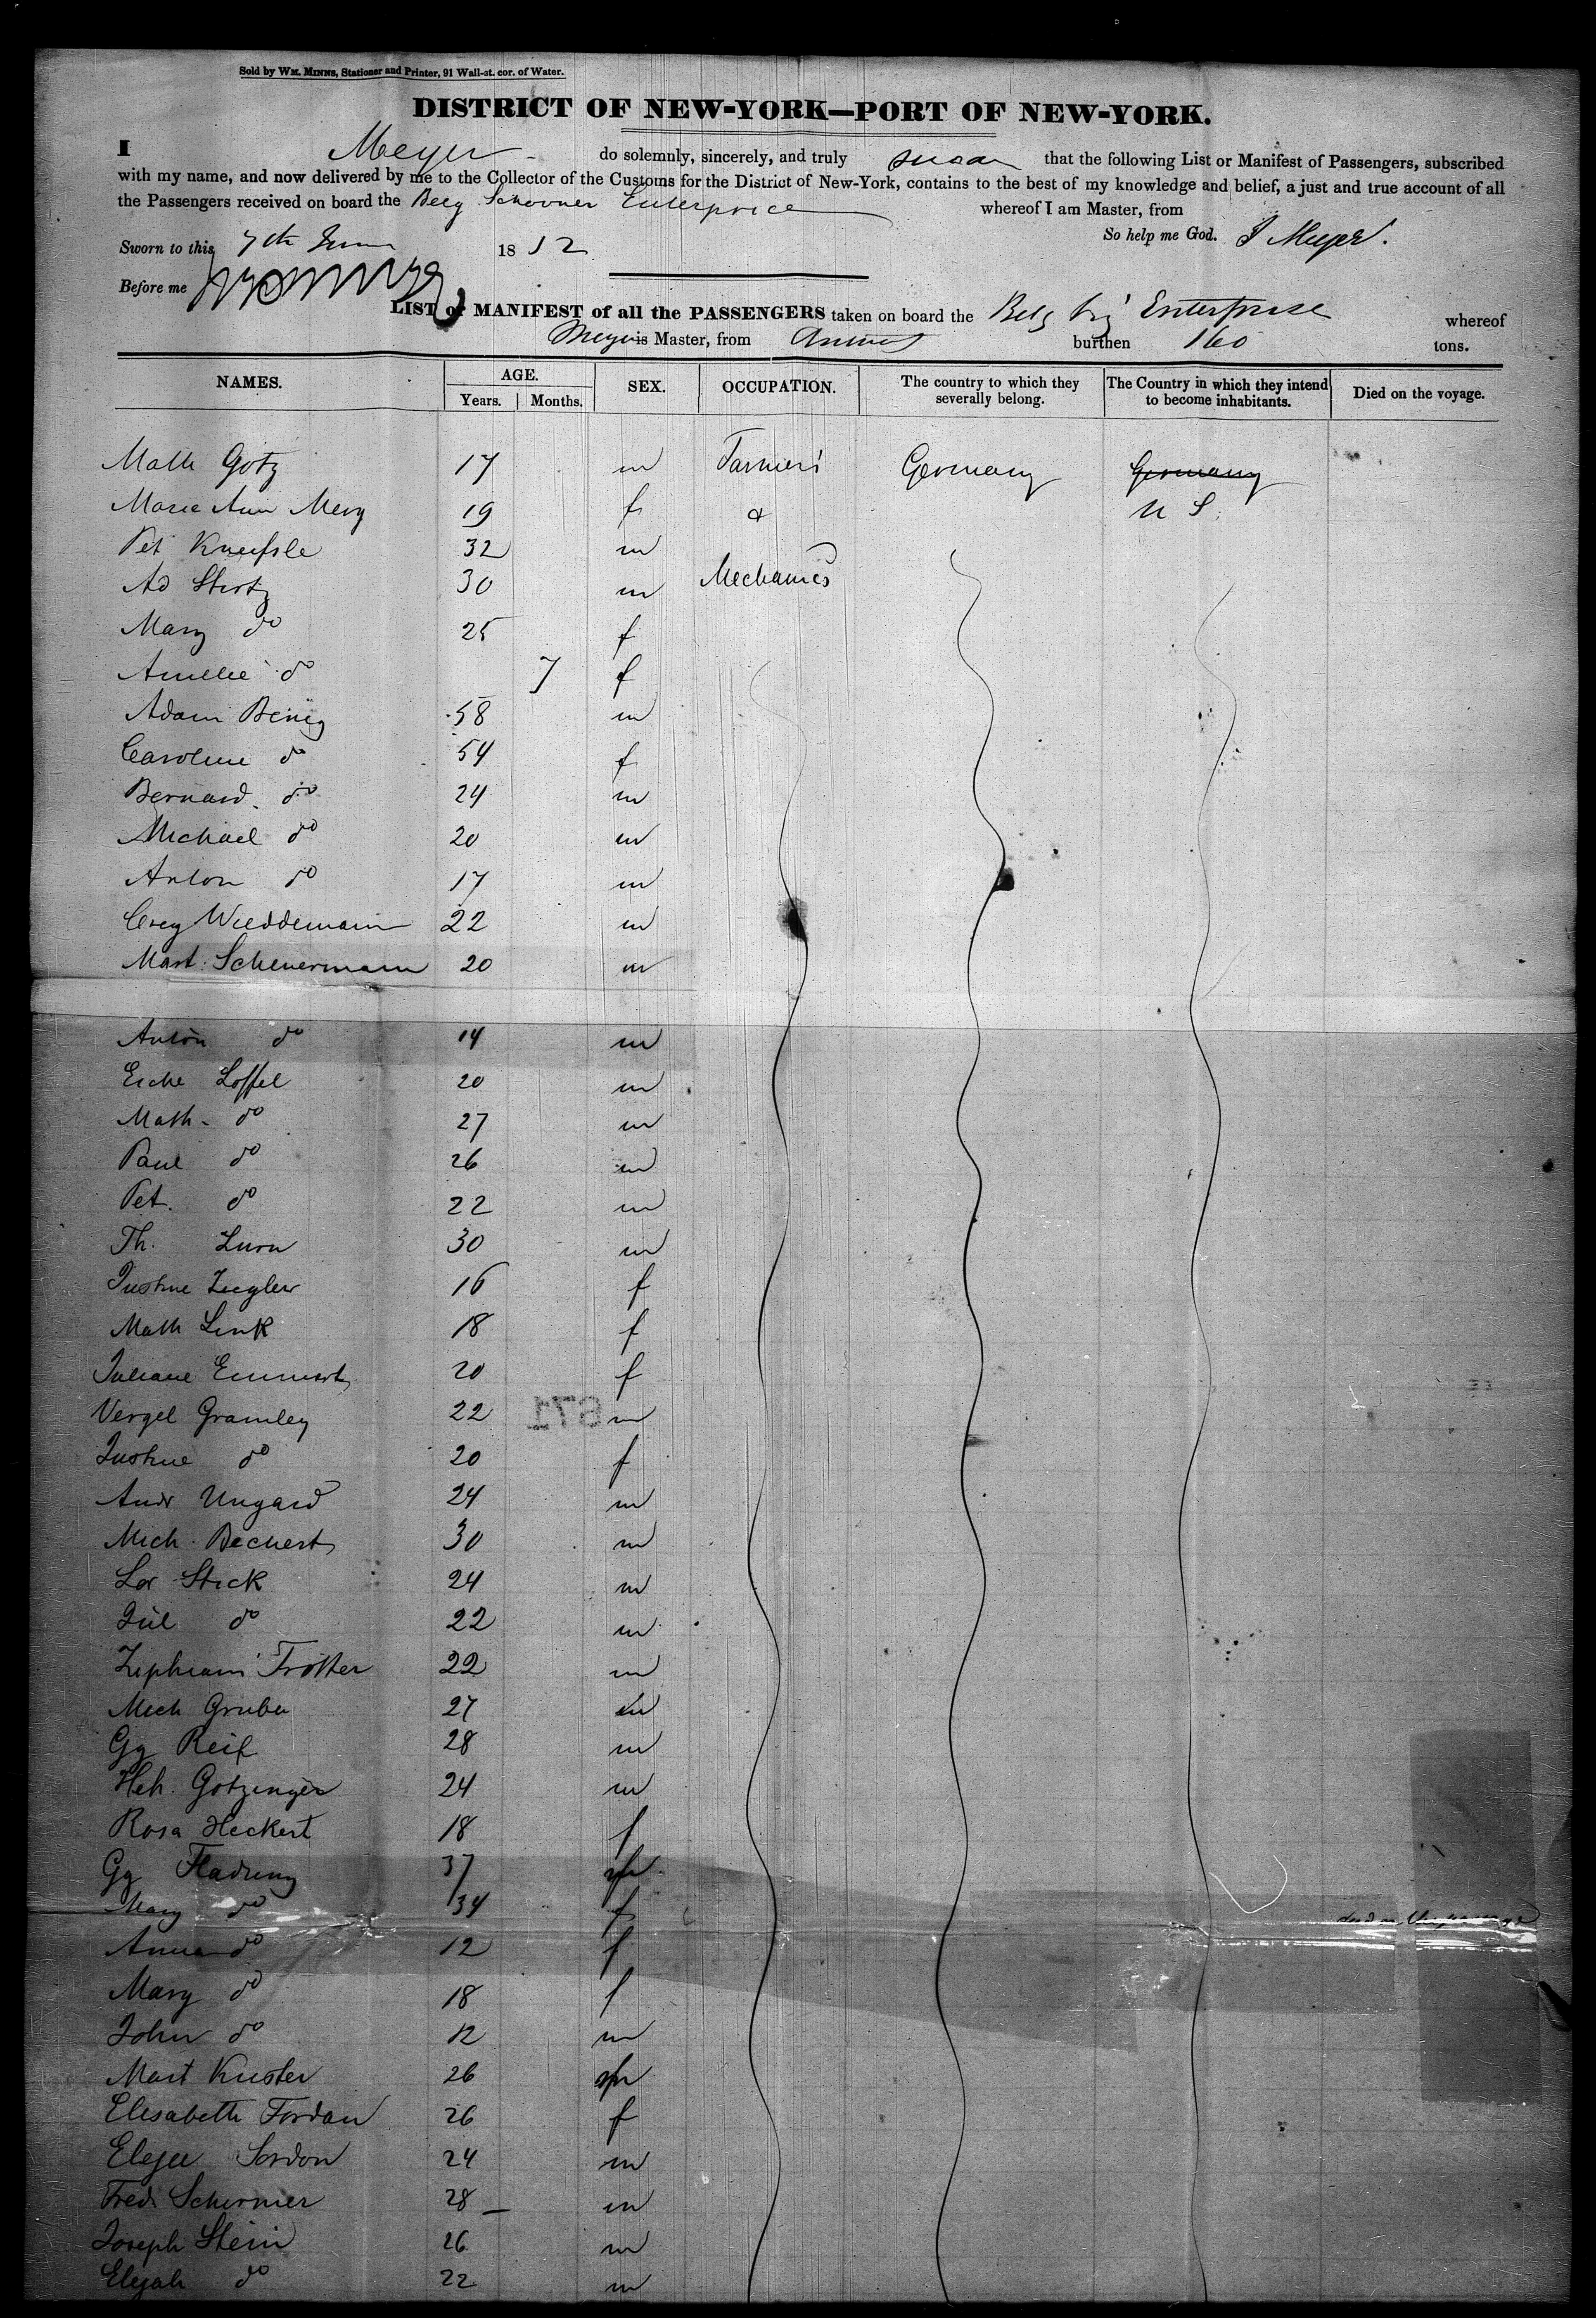 Sold by WM. MINNS, Stationer and Printer, 91 Wall-st. cor. of Water.
DISTRICT OF NEW-YORK—PORT OF NEW-YORK.
I Meyer do solemnly, sincerely, and truly swear that the following List or Manifest of Passengers, subscribed
with my name, and now delivered by me to the Collector of the Customs for the District of New-York, contains to the best of my knowledge and belief, a just and true account of all
the Passengers received on board the Belg Schooner Enterprice whereof I am Master, from
So help me God. J Meyer.
Sworn to this 7th June 1852
Before me
LIST or MANIFEST of all the PASSENGERS taken on board the Belg brig Enterprise whereof
Meyer is Master, from Antwerp burthen 160 tons.
NAMES. AGE. Years. Months. SEX. OCCUPATION. The country to which they severally belong. The Country in which they intend to become inhabitants. Died on the voyage.
Math Gotz 17 m Farmers Germany Germany
Marie Ann 19 f & U S.
Pet 32 m
Ad Stirtz 30 m Mechanics
Mary do 25 f
Amelie do 7 f
Adam Bening 58 m
Caroline do 54 f
Bernard do 24 m
Michael do 20 m
Anton do 17 m
Greg Wieddemann 22 m
Mart. Scheuermann 20 m
Anton do 14 m
Loffel 20 m
Math do 27 m
Paul do 26 m
Pet. do 22 m
Th. Lurn 30 m
Justine Ziegler 16 f
Math Link 18 f
Juliane Emmert 20 f
Vergel Gramley 22 m
671
Justine do 20 f
Andr Ungard 24 m
Mich. Bechert 30 m
Lor Stick 24 m
Jul do 22 m
Zephram Troster 22 m
Mich Gruber 27 m
Gg Reif 28 m
Hch. Gotzinger 24 m
Rosa Heckert 18 f
Gg Fladung 37 m
Mary do 34 f died on the passage
Anna do 12 f
Mary do 18 f
John do 12 m
Mart Kuster 26 m
Elisabeth Jordan 26 f
Jordon 24 m
Fred. Schirmer 28 m
Joseph Stein 26 m
Elijah do 22 m